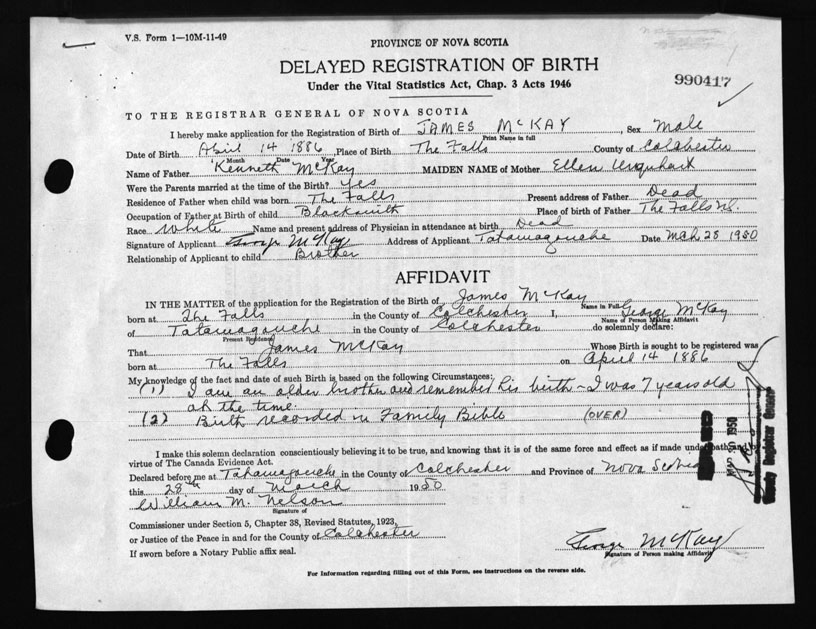 V.S. Form 1—10M-11-49
PROVINCE OF NOVA SCOTIA
DELAYED REGISTRATION OF BIRTH
Under the Vital Statistics Act, Chap. 3 Acts 1946
990417
TO THE REGISTRAR GENERAL OF NOVA SCOTIA
I hereby make application for the Registration of Birth of JAMES McKAY Sex Male
Print Name in full
Date of Birth April 14 1886 Place of Birth The Falls County of Colchester
Month Date Year
Name of Father Kenneth McKay MAIDEN NAME of Mother Ellen Urquhart
Were the Parents married at the time of the Birth? Yes
Residence of Father when child was born The Falls Present address of Father Dead
Occupation of Father at Birth of child Blacksmith Place of birth of Father The Falls N.S.
Race White Name and present address of Physician in attendance at birth Dead
Signature of Applicant George McKay Address of Applicant Tatamagouche Date Mch 28 1950
Relationship of Applicant to child Brother
AFFIDAVIT
IN THE MATTER of the application for the Registration of the Birth of James McKay
Name in Full
born at The Falls in the County of Colchester I, George McKay
Name of Person Making Affidavit
of Tatamagouche in the County of Colchester do solemnly declare:
Present Residence
That James McKay Whose Birth is sought to be registered was
born at The Falls on April 14 1886
My knowledge of the fact and date of such Birth is based on the following Circumstances:
(1) I am an older brother and remember his birth - I was 7 years old
at the time.
(2) Birth recorded in Family Bible (OVER)
I make this solemn declaration conscientiously believing it to be true, and knowing that it is of the same force and effect as if made under oath and
virtue of The Canada Evidence Act.
Declared before me at Tatamagouche in the County of Colchester and Province of Nova Scotia
this 28th day of March 1950
William M. Nelson
Signature of
Commissioner under Section 5, Chapter 38, Revised Statutes, 1923,
or Justice of the Peace in and for the County of Colchester
If sworn before a Notary Public affix seal.
George McKay
Signature of Person making Affidavit
For Information regarding filling out of this Form, see instructions on the reverse side.
1950